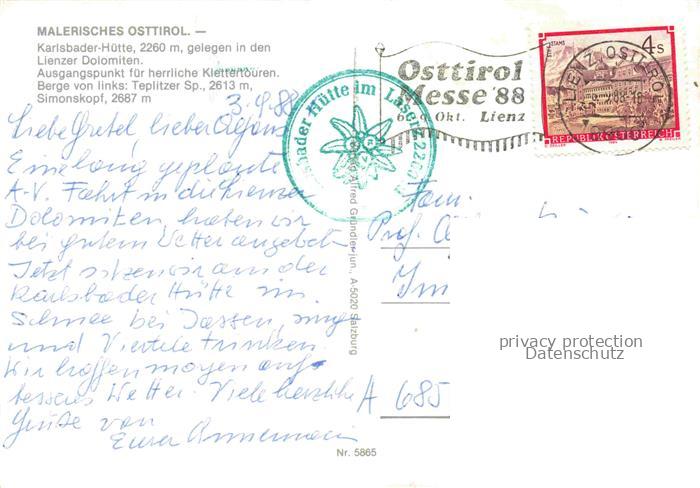 MALERISCHES OSTTIROL. —
Karlsbader-Hütte, 2260 m, gelegen in den
Lienzer Dolomiten.
Ausgangspunkt für herrliche Klettertouren.
Berge von links: Teplitzer Sp., 2613 m,
Simonskopf, 2687 m
3.9.88
Liebe Gretel, lieber
Eine lang geplante
A-V. Fahrt in die Lienzer
Dolomiten, haben wir
bei gutem Wetter
Jetzt sitzen wir an der
Karlsbader Hütte im
Schnee bei
und Viertele trinken.
Wir hoffen morgen auf
besseres Wetter. Viele herzliche
Grüße von
Eurer Annemarie
bader Hütte im Laserz 2260
Osttirol
Messe '88
Okt. Lienz
LIENZ, OSTTIROL
STAMS
4 S
REPUBLIK ÖSTERREICH
Alfred Gründler jun., A-5020 Salzburg
Fam.
Prof.
A 685
privacy protection
Datenschutz
Nr. 5865